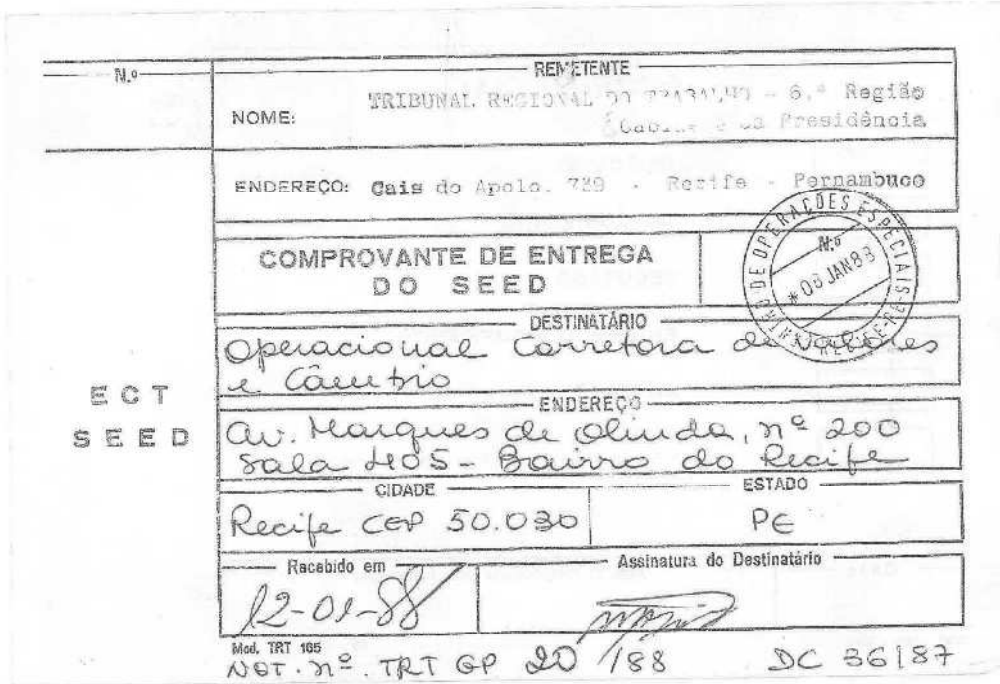 N.º
REMETENTE
NOME: TRIBUNAL REGIONAL DO TRABALHO - 6.ª Região
Gabinete da Presidência
ENDEREÇO: Cais do Apolo. 739 - Recife - Pernambuco
COMPROVANTE DE ENTREGA
DO SEED
N.º
CENTRO DE OPERAÇÕES ESPECIAIS
JAN 88
RECIFE-PE
DESTINATÁRIO
Operacional Corretora de Valores
e Câmbio
ECT
SEED
ENDEREÇO
Av. Marques de Olinda, nº 200
Sala 405 - Bairro do Recife
CIDADE
ESTADO
Recife CEP 50.030
PE
Recebido em
Assinatura do Destinatário
12-01-88
Mod. TRT 165
NOT. nº TRT GP 20/88 DC 36/87